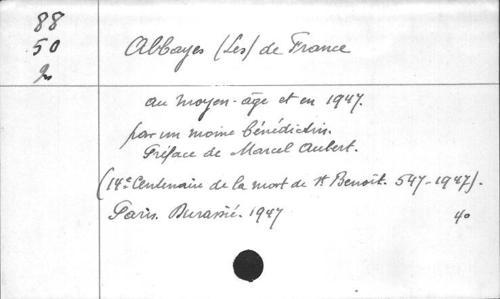 88
50
Abbayes (Les) de France
au moyen-âge et en 1947.
par un moine bénédictin.
Préface de Marcel Aubert.
(14e Centenaire de la mort de St Benoît. 547-1947).
Paris. Durassié. 1947
4o